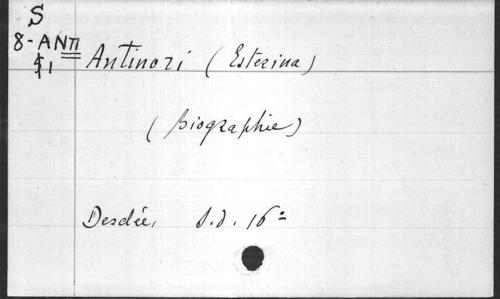 S
8-ANTI
§1
Antinori (Esterina)
(Biographie)
Desclée, S.d. 16º